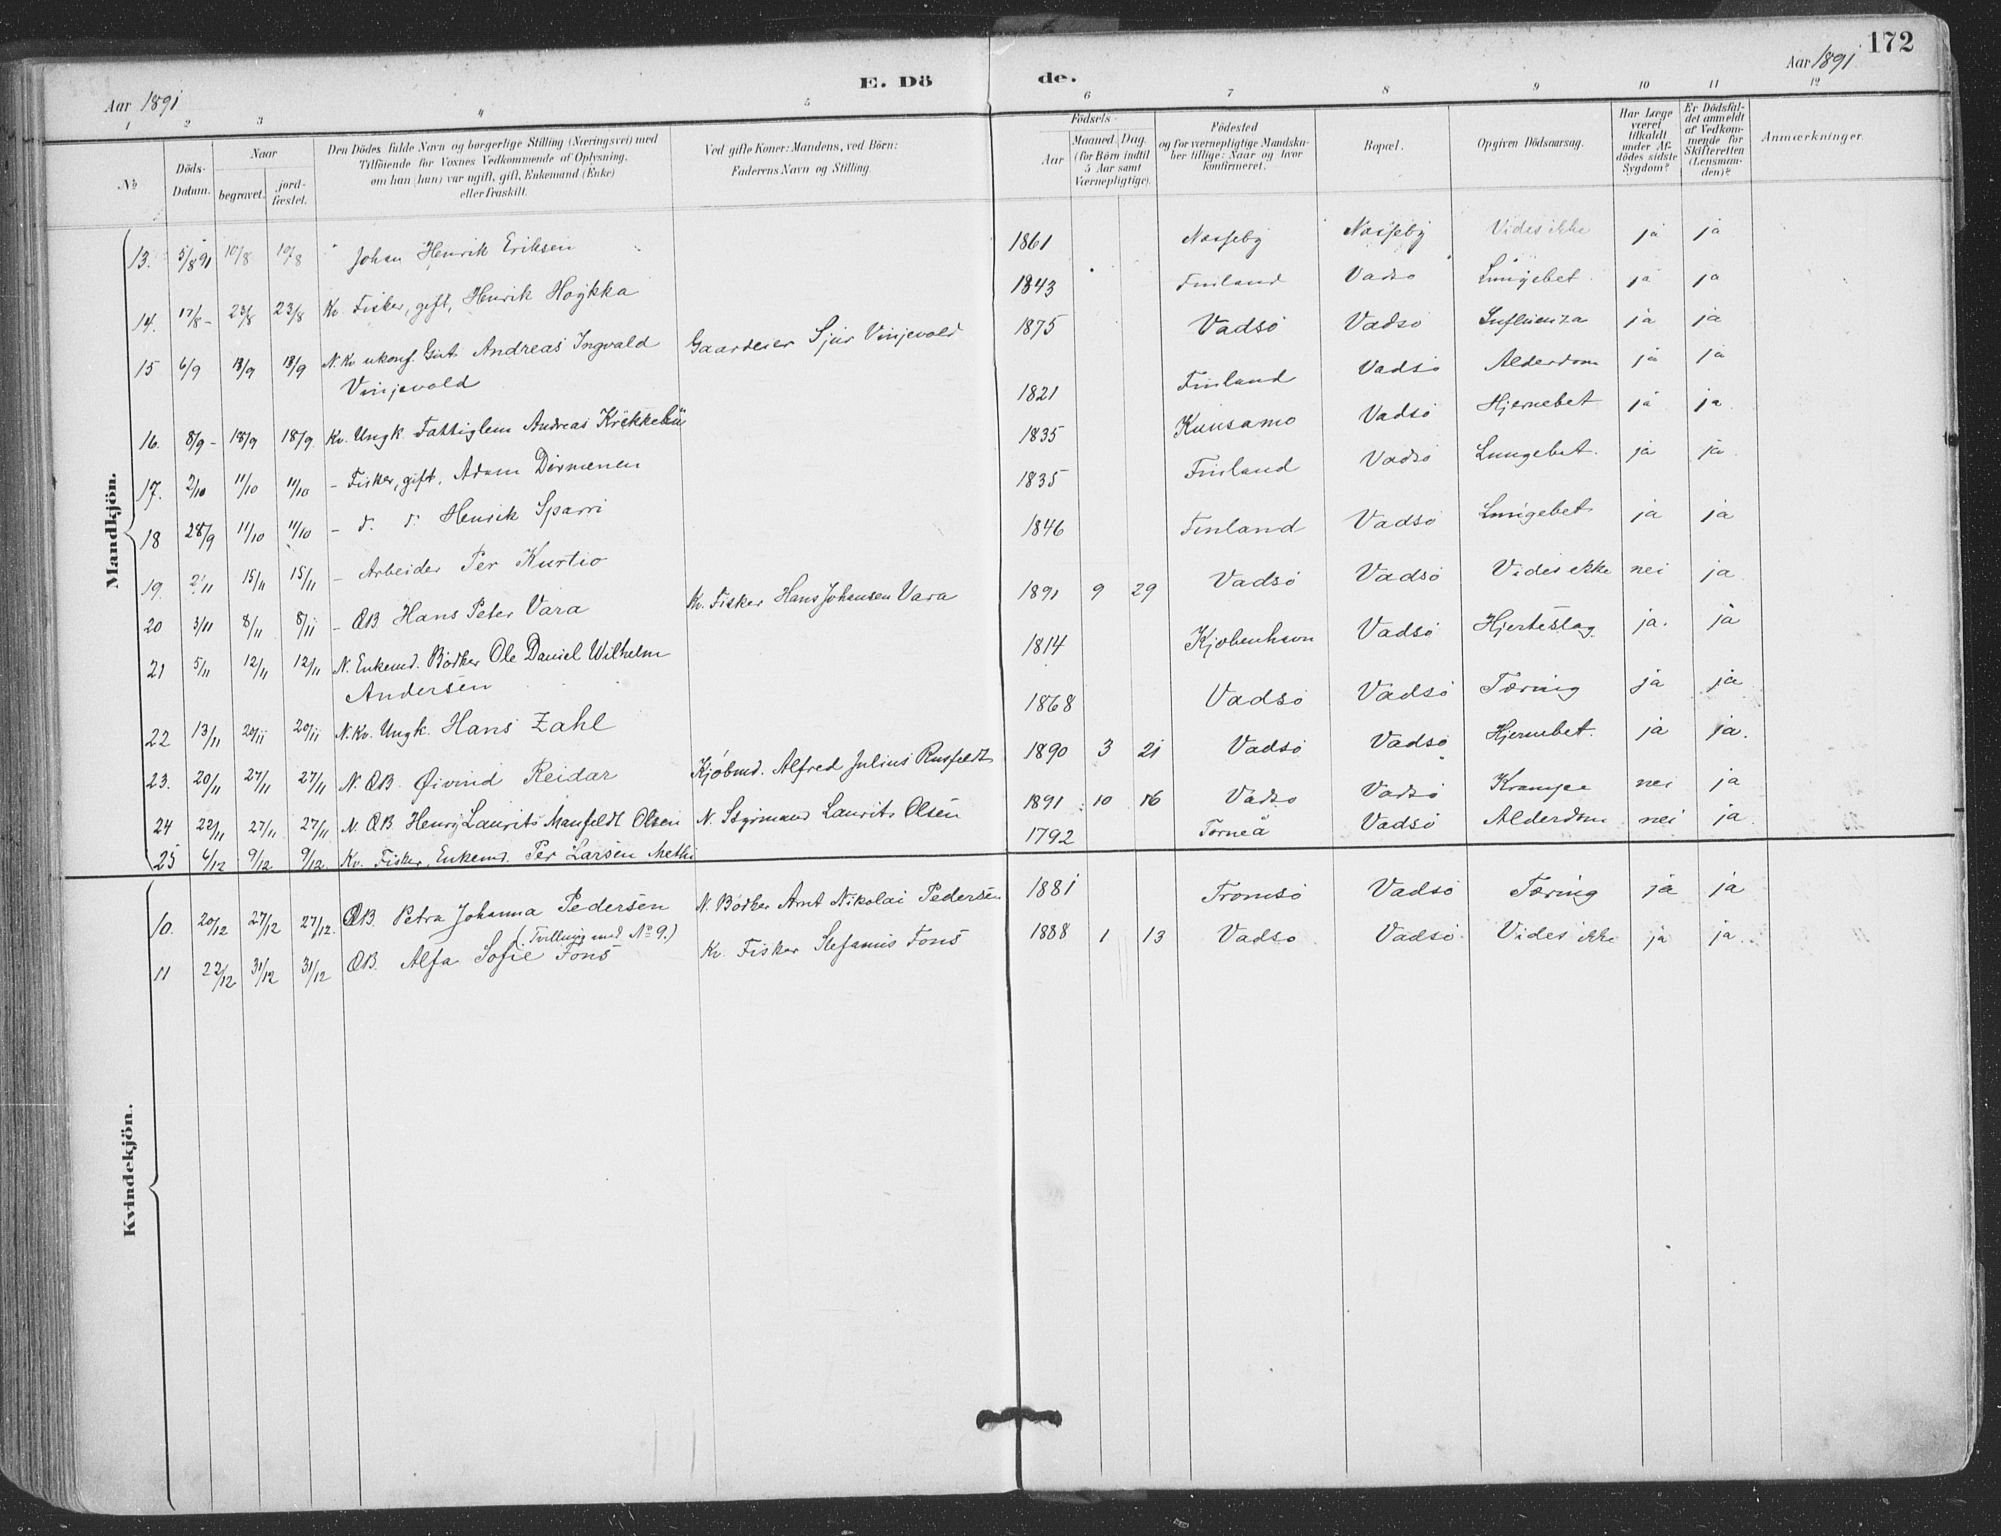 172
E. Dö de.
Aar 1891 Aar 1891
1 2 3 4 5 6 7 8 9 10 11 12
No Döds-Datum. Naar begravet. jord-fæstet. Den Dödes fulde Navn og borgerlige Stilling (Næringsvei) med Tilföiende for Voxnes Vedkommende af Oplysning, om han (hun) var ugift, gift, Enkemand (Enke) eller fraskilt. Ved gifte Koner: Mandens, ved Börn: Faderens Navn og Stilling. Födsels- Aar Maaned. Dag. (for Börn indtil 5 Aar samt Værnepligtige). Födested og for værnepligtige Mandskaber tillige: Naar og hvor konfirmeret. Bopæl. Opgiven Dödsaarsag. Har Læge været tilkaldt under Afdödes sidste Sygdom? Er Dödsfaldet anmeldt af Vedkommende for Skifteretten (Lensmanden)? Anmærkninger.
Mandkjön.
13. 5/8 91 10/8 10/8 Johan Henrik Eriksen 1861 Næsseby Næsseby Vides ikke ja ja
14. 17/8 - 23/8 23/8 Kv. Fisker, gift, Henrik Hoykka 1843 Finland Vadsö Lungebet. ja ja
15 6/9 13/9 13/9 N. Kv. ukonf. Gut Andreas Ingvald Gaardeier Sjur Vinjevold 1875 Vadsö Vadsö Influenza ja ja
Vinjevold
16. 8/9 - 18/9 18/9. Kv. Ungk. Fattiglem Andreas 1821 Finland Vadsö Alderdom ja ja
17. 2/10 11/10 11/10 - Fisker, gift, Adam 1835 Kuusamo Vadsö Hjernebet ja ja
18 28/9 11/10 11/10 - d. d. Henrik Sparri 1835 Finland Vadsö Lungebet. ja ja
19. 2/11 15/11 15/11 - Arbeider Per Kurtio 1846 Finland Vadsö Lungebet ja ja
20 3/11 8/11 8/11 - ÆB. Hans Peter Vara Kv. Fisker Hans Johansen Vara 1891 9 29 Vadsö Vadsö Vides ikke nei ja
21 5/11 12/11 12/11 N. Enkemd. Bödker Ole Daniel Wilhelm 1814 Kjöbenhavn Vadsö Hjerteslag. ja. ja
Andersen
22 13/11 20/11 20/11 N. Kv. Ungk. Hans Zahl 1868 Vadsö Vadsö Tæring ja ja
23. 20/11 27/11 27/11 N. ÆB. Øivind Reidar Kjöbmd. Alfred Julius Rusfeldt 1890 3 21 Vadsö Vadsö Hjernebet. ja ja.
24 22/11 27/11 27/11 N. ÆB. Henry Laurits Manfeldt Olsen N. Styrmand Laurits Olsen 1891 10 16 Vadsö Vadsö Krampe nei ja
25 4/12 9/12 9/12 Kv. Fisker, Enkemd. Per Larsen Methi 1792 Torneå Vadsö Alderdom nei ja
Kvindekjön.
10. 20/12 27/12 27/12. ÆB. Petra Johanna Pedersen N. Bödker Arnt Nikolai Pedersen 1881 Tromsö Vadsö Tæring ja ja
(Tvilling med No 9.)
11 22/12 31/12 31/12 ÆB. Alfa Sofie Fors Kv. Fisker Stefanus Fors 1888 1 13 Vadsö Vadsö Vides ikke ja ja